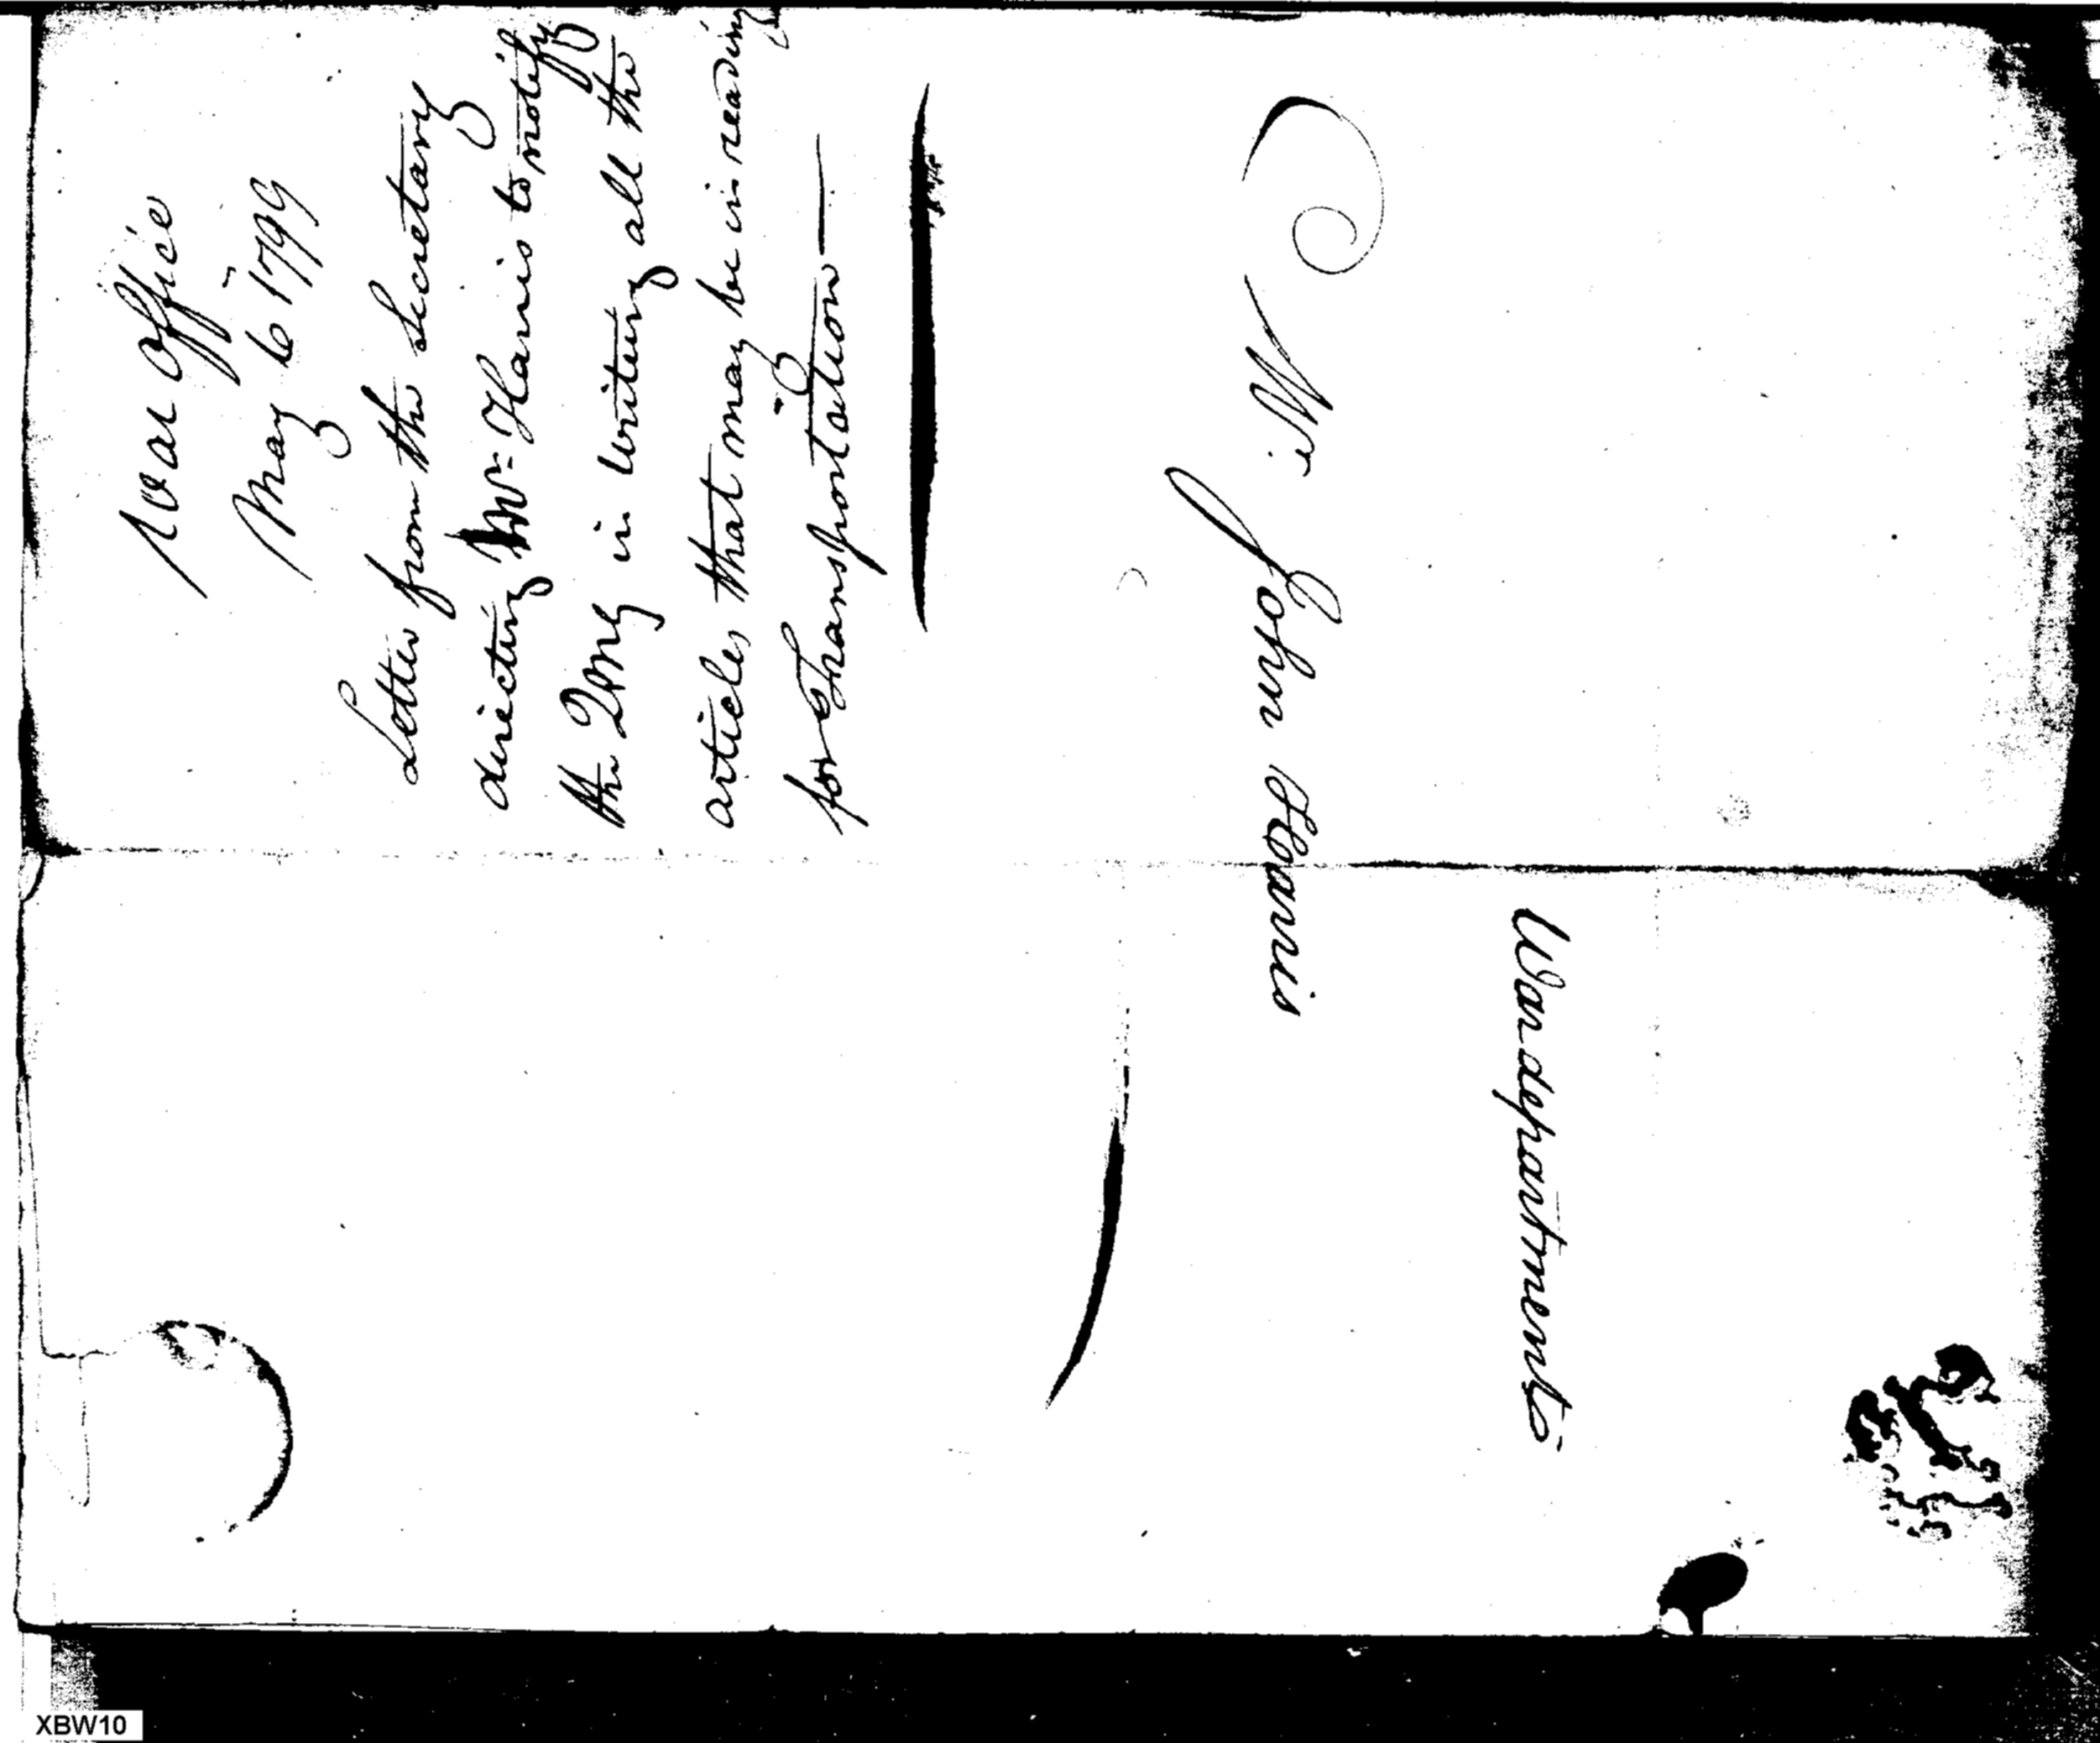 War Office
May 6 1799
Letter from the Secretary
directing Mr. Harris to notify
the QMG in writing all the
articles that may be in reading
for Transportation —
Mr. John Harris
War department
XBW10